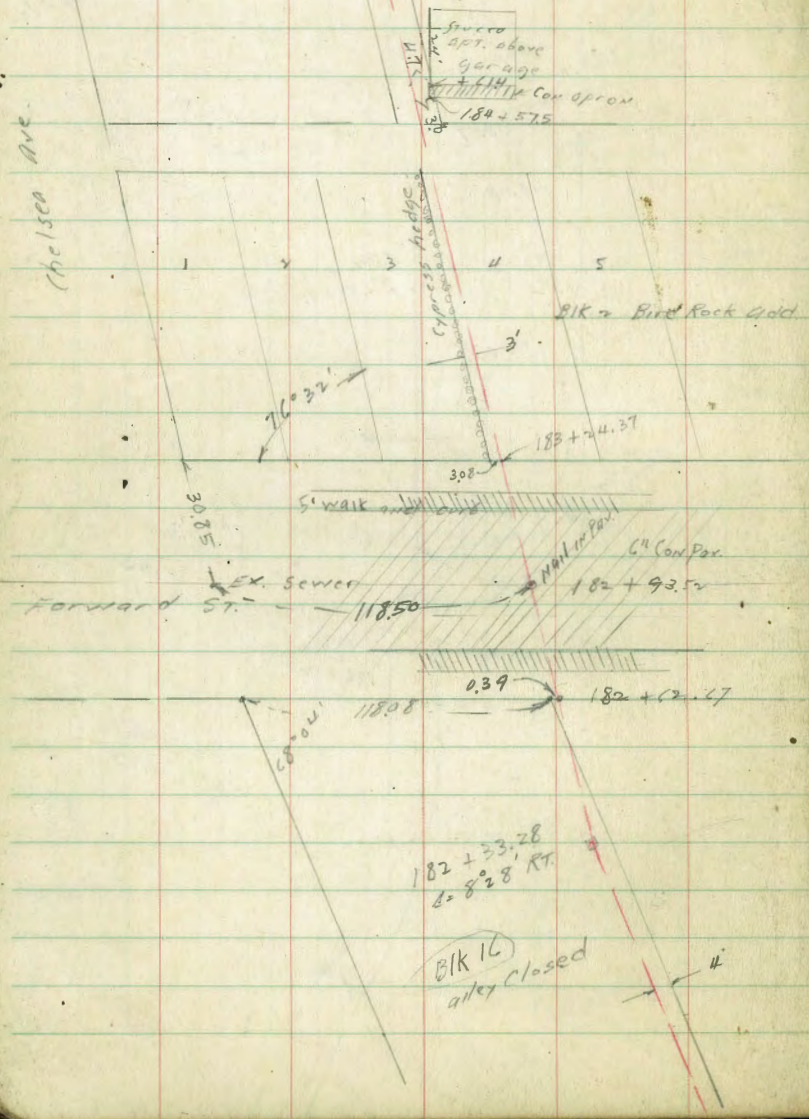 Stucco
apt. above
garage
24'
4.7'
+ 61.4
Con apron
184 + 57.5
3.0
Chelsea Ave.
Cypress hedge
1 2 3 4 5
Blk 2 Bird Rock add.
3'
76° 32'
183 + 24.37
3.08
5' walk and curb
30.85
Nail in Pav.
6" Con Pav.
Ex. Sewer
182 + 93.52
Forward ST.
118.50
0.39
182 + 62.67
118.08
68° 04'
182 + 33.28
Δ= 8° 28' RT.
Blk 16
alley Closed
4'